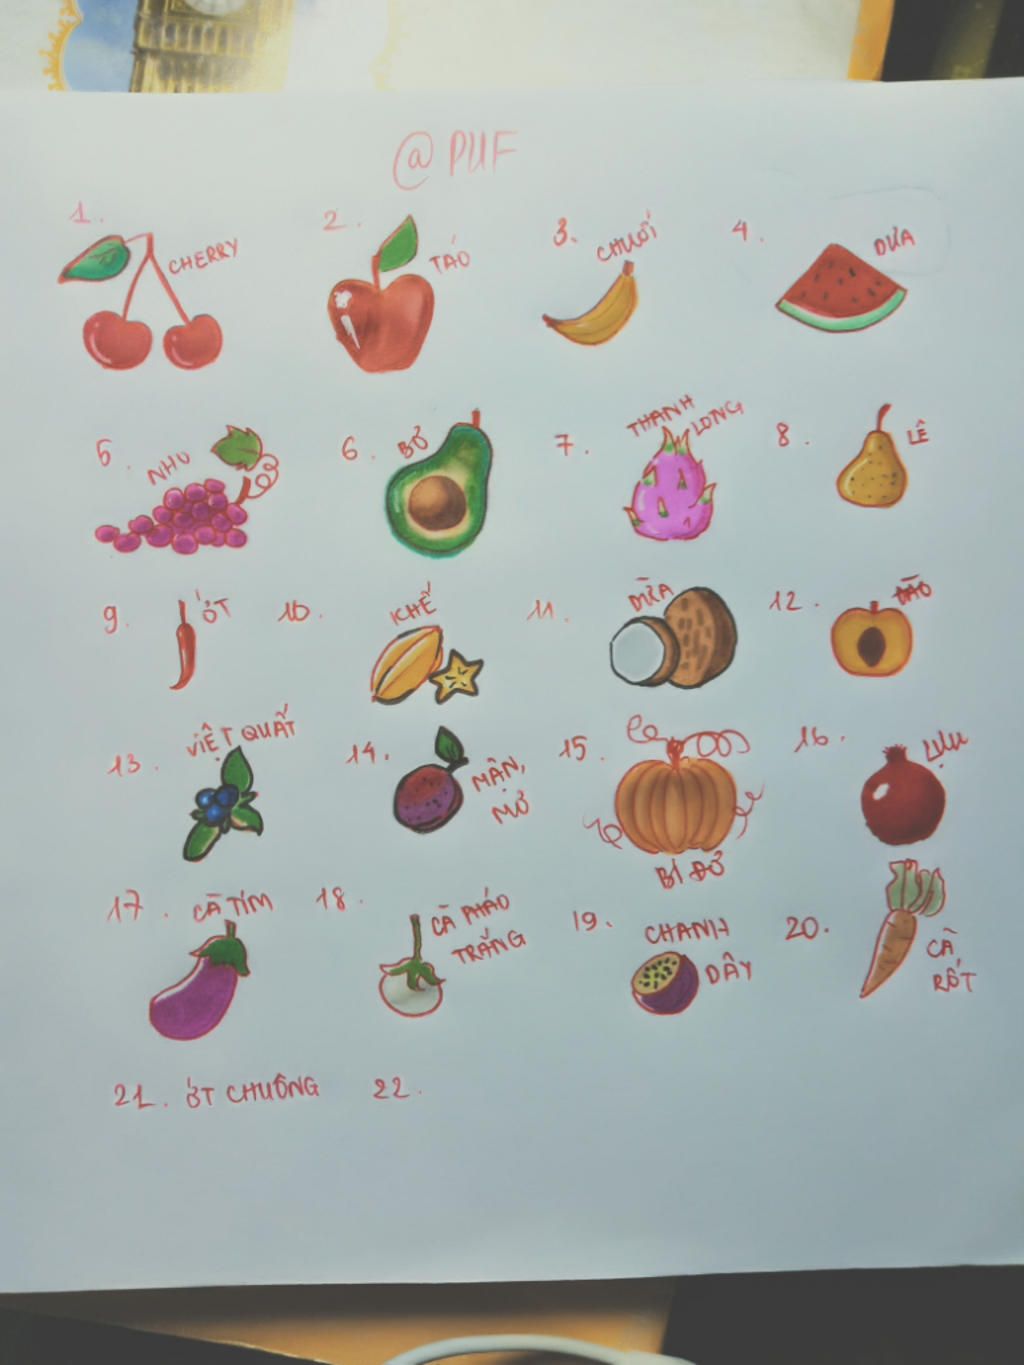 @PUF
1. CHERRY
2. TÁO
3. CHUỐI
4. DƯA
5. NHO
6. BƠ
7. THANH
LONG
8. LÊ
9. ỚT
10. KHẾ
11. DỪA
12. ĐÀO
13. VIỆT QUẤT
14. MẬN,
MƠ
15. BÍ ĐỎ
16. LỰU
17. CÀ TÍM
18. CÀ PHÁO
TRẮNG
19. CHANH
DÂY
20. CÀ
RỐT
21. ỚT CHUÔNG
22.